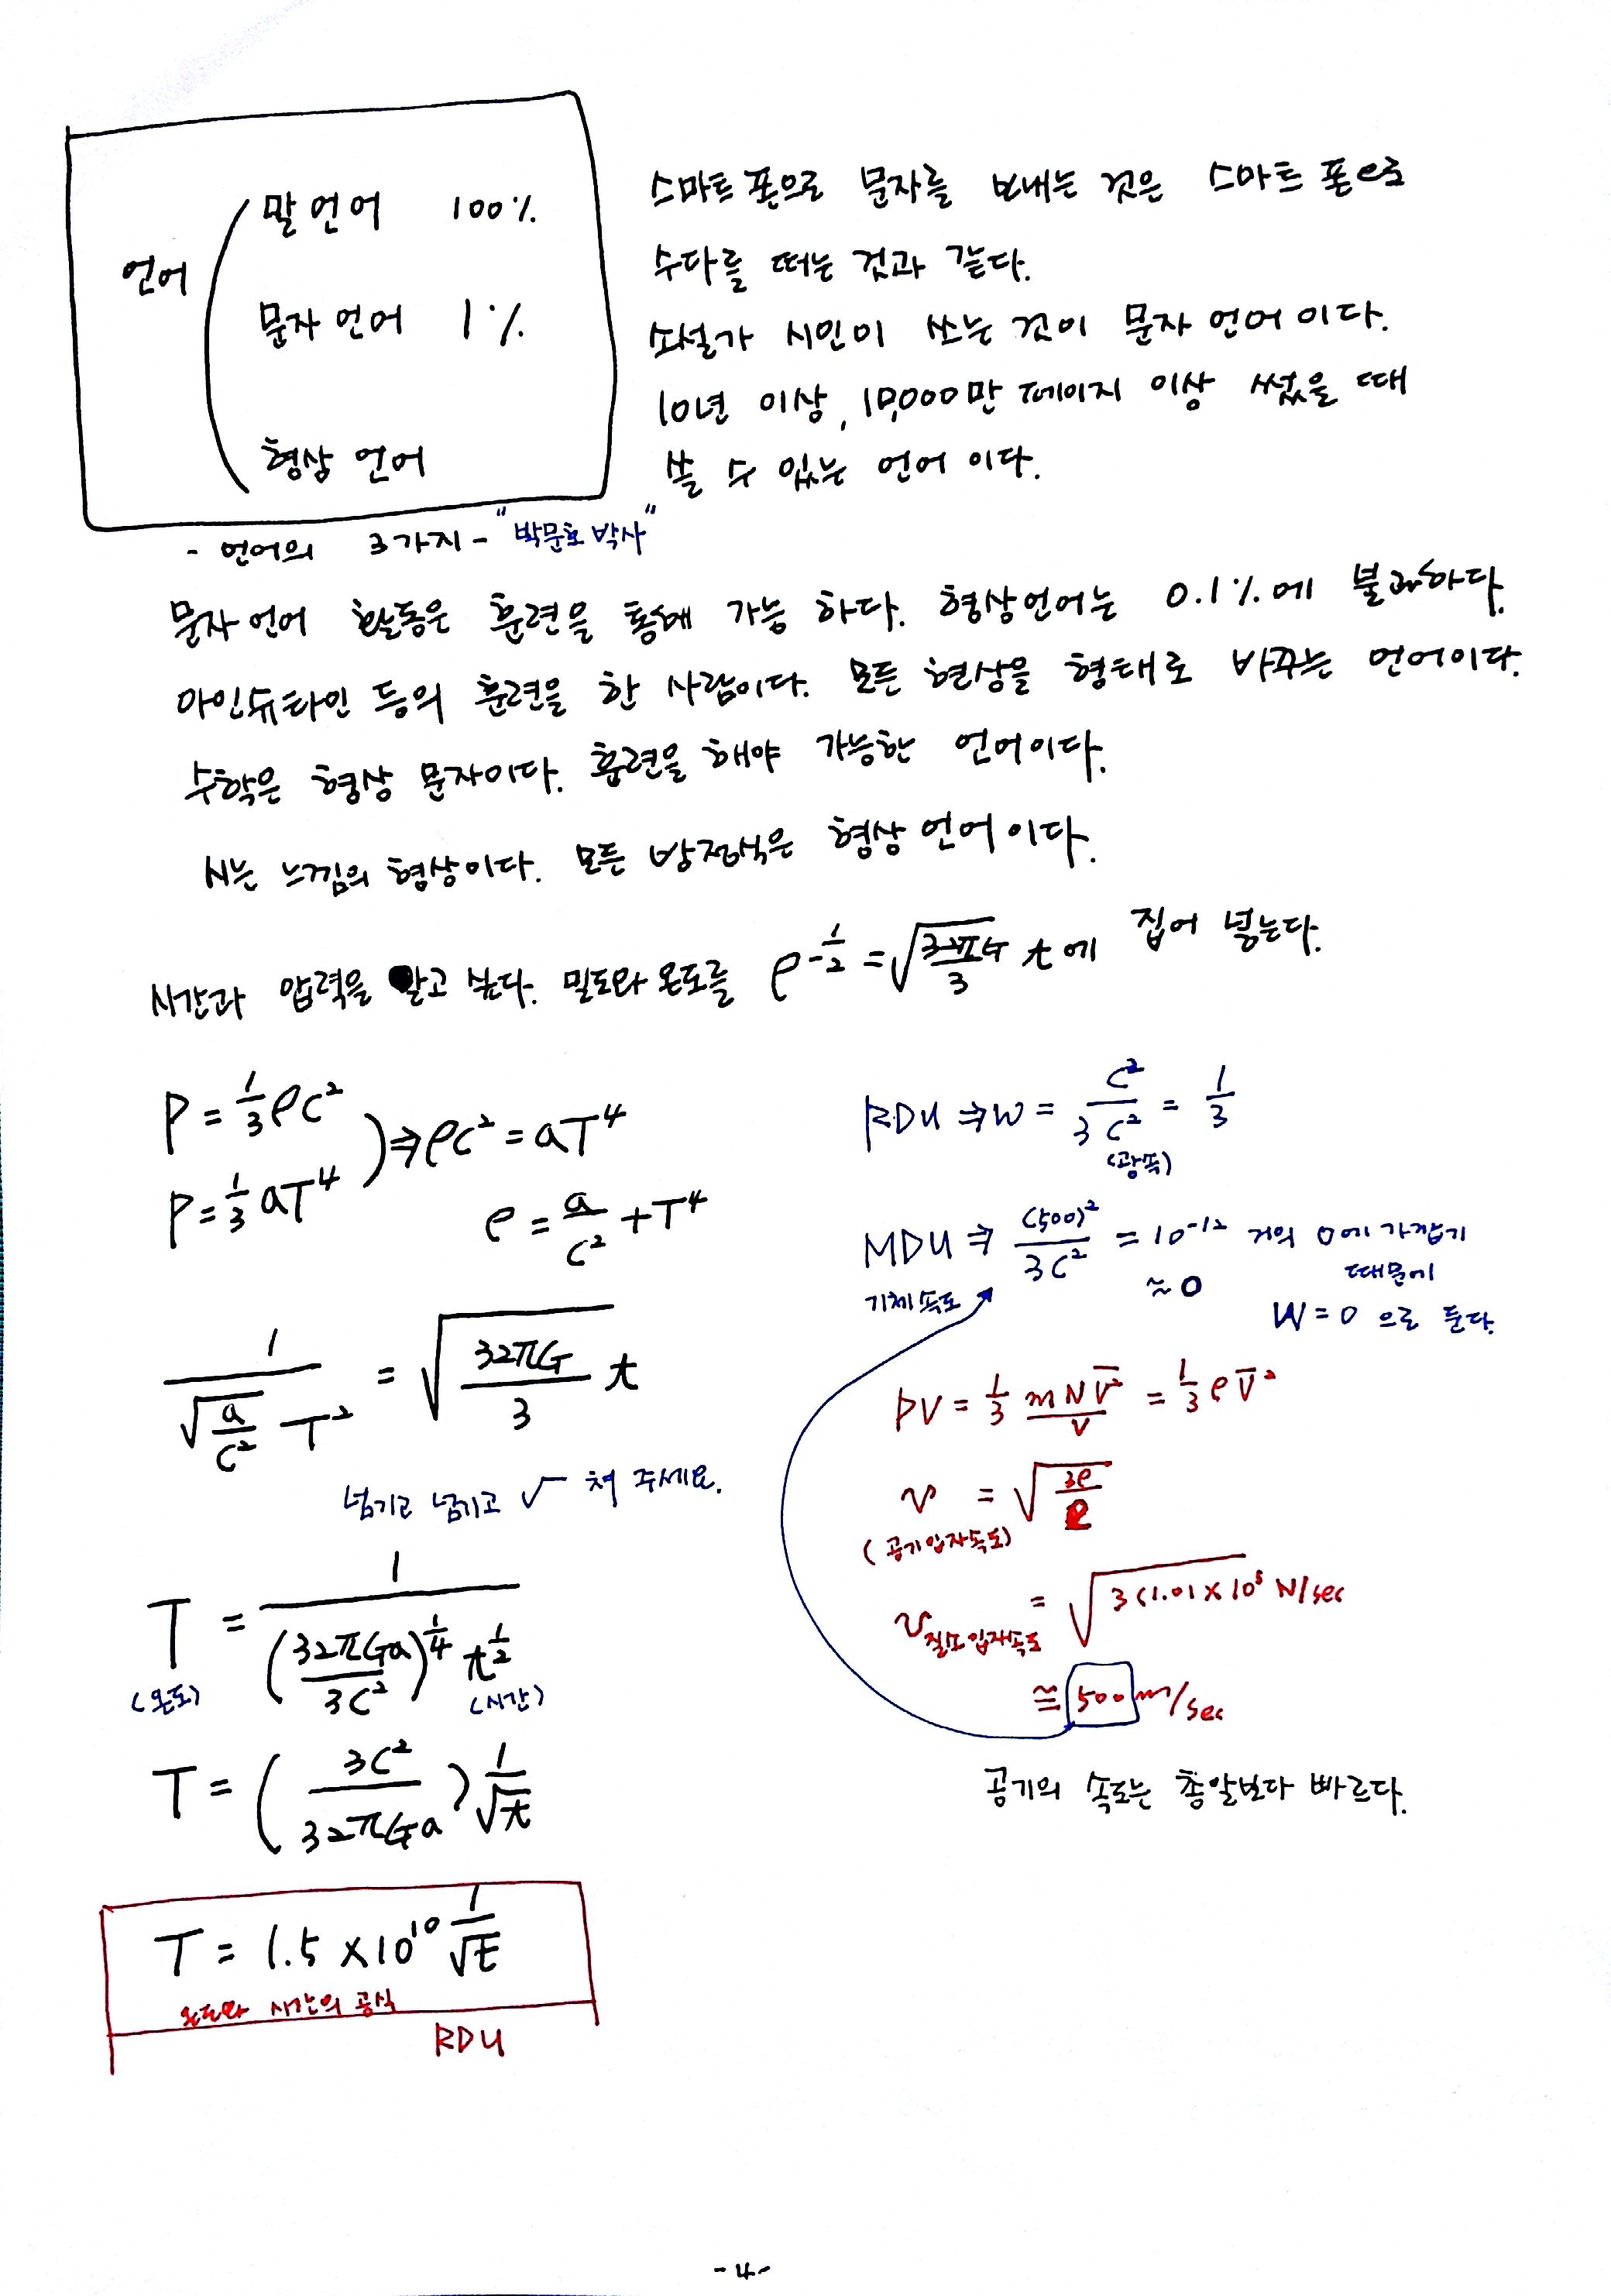 언어
말 언어 100%
문자 언어 1%
형상 언어
- 언어의 3가지 - "박문호 박사"
스마트폰으로 문자를 보내는 것은 스마트폰으로
수다를 떠는 것과 같다.
소설가 시인이 쓰는 것이 문자 언어이다.
10년 이상, 10,000만 페이지 이상 썼을 때
쓸 수 있는 언어이다.
문자 언어 활동은 훈련을 통해 가능하다. 형상언어는 0.1%에 불과하다.
아인슈타인 등의 훈련을 한 사람이다. 모든 현상을 형태로 바꾸는 언어이다.
수학은 형상 문자이다. 훈련을 해야 가능한 언어이다.
시는 느낌의 형상이다. 모든 방정식은 형상 언어이다.
시간과 압력을 알고 싶다. 밀도와 온도를 ρ^-1/2 = √(32πG/3) t에 집어 넣는다.
P = 1/3 ρC²
P = 1/3 aT⁴
) ⇒ ρC² = aT⁴
ρ = a/C² + T⁴
1/(√(a/C²) T²) = √(32πG/3) t
넘기고 넘기고 √ 쳐 주세요.
T = 1/((32πGa/3C²)^1/4 t^1/2)
(온도) (시간)
T = (3C²/32πGa) 1/√t
T = 1.5 × 10¹⁰ 1/√t
온도와 시간의 공식
RDU
RDU ⇒ W = C²/3C² = 1/3
(광속)
MDU ⇒ (500)²/3C² = 10⁻¹² 거의 0에 가깝기
기체 속도 ≈ 0 때문에
W = 0 으로 둔다.
PV = 1/3 mNV̄²/V = 1/3 ρV̄²
v = √(3P/ρ)
(공기입자속도)
v질소입자속도 = √3(1.01 × 10⁵ N/sec
≅ 500 m/sec
공기의 속도는 총알보다 빠르다.
-4-